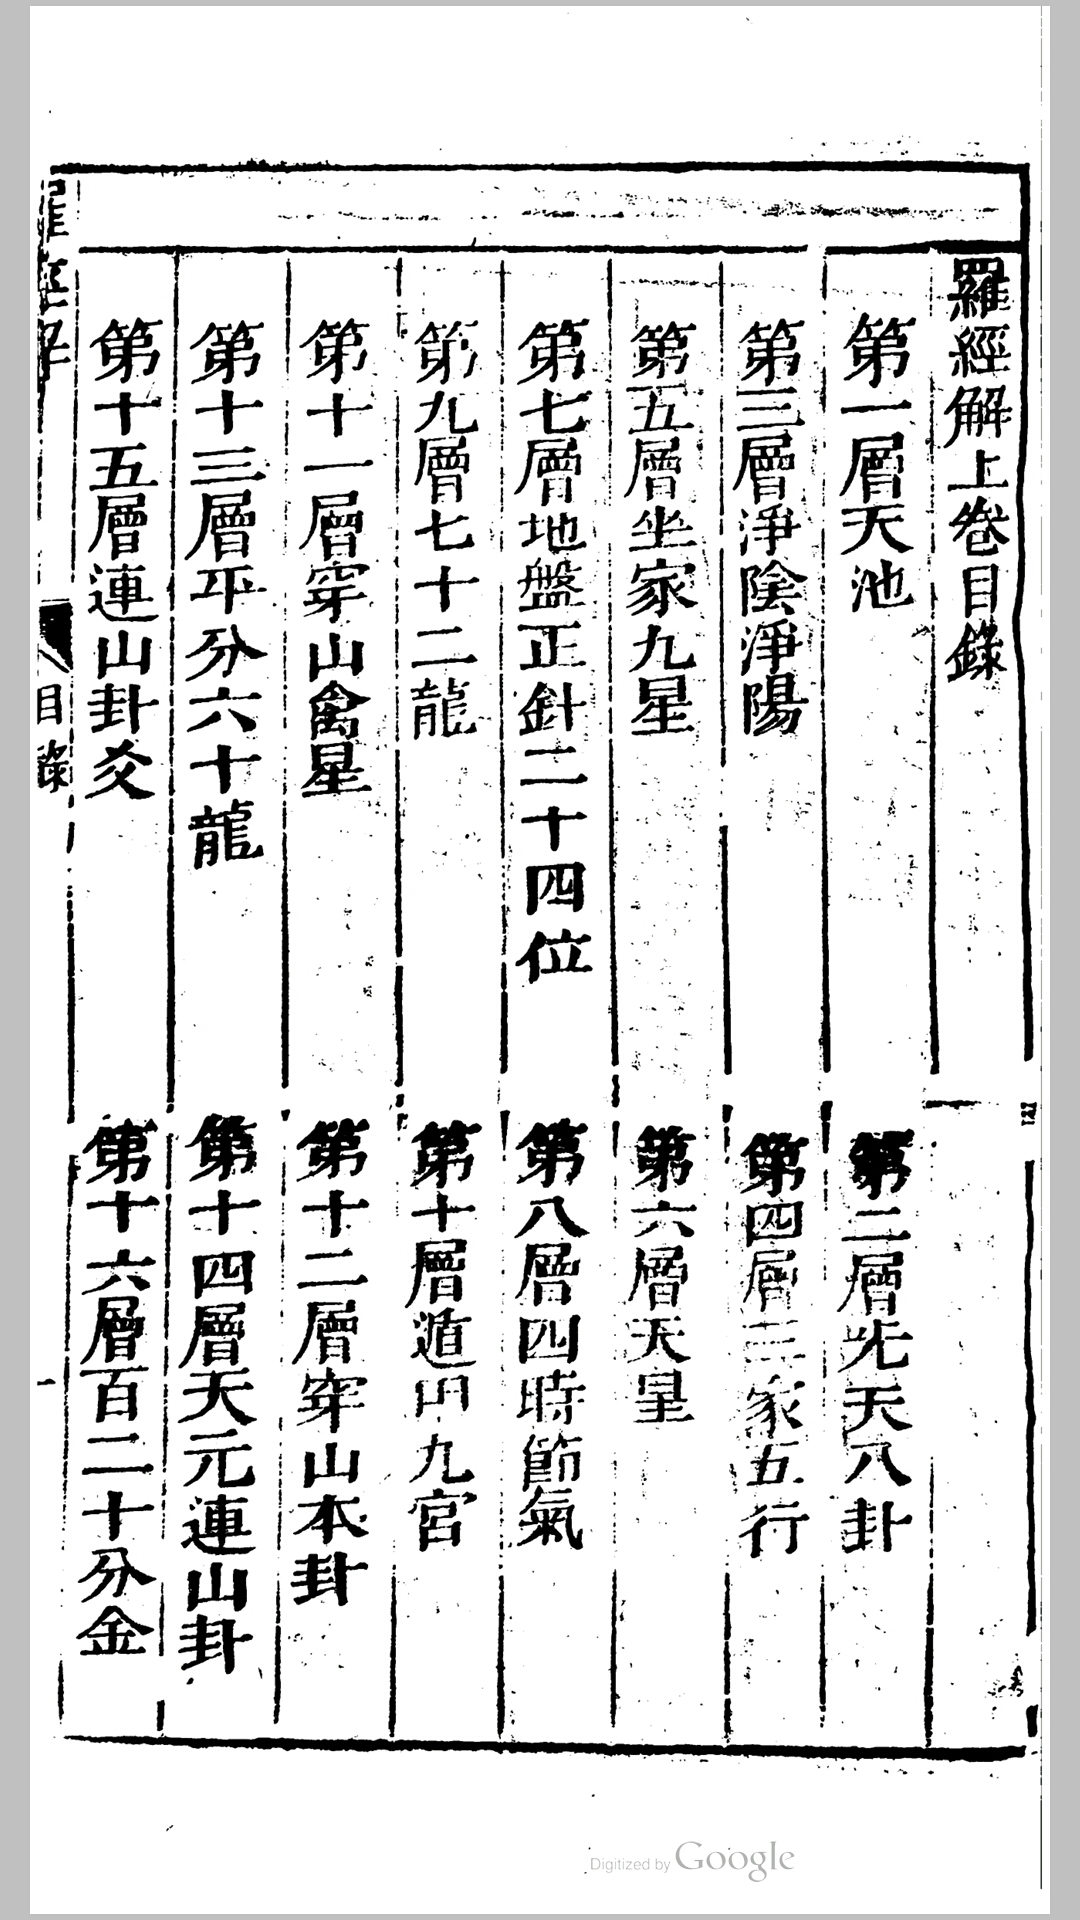 羅經解上卷目錄
第一層天池
第二層先天八卦
第三層淨陰淨陽
第四層三家五行
第五層坐家九星
第六層天星
第七層地盤正針二十四位
第八層四時節氣
第九層七十二龍
第十層遁甲九宮
第十一層穿山禽星
第十二層穿山本卦
第十三層平分六十龍
第十四層天元連山卦
第十五層連山卦爻
第十六層百二十分金
羅經解
目錄
Digitized by Google